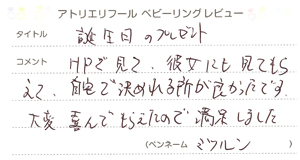 アトリエリフール ベビーリングレビュー
タイトル 誕生日のプレゼント
コメント HPで見て、彼女にも見てもら
えて、自宅で決めれる所が良かったです。
大変喜んでもらえたので満足しました
(ペンネーム ミツルン )